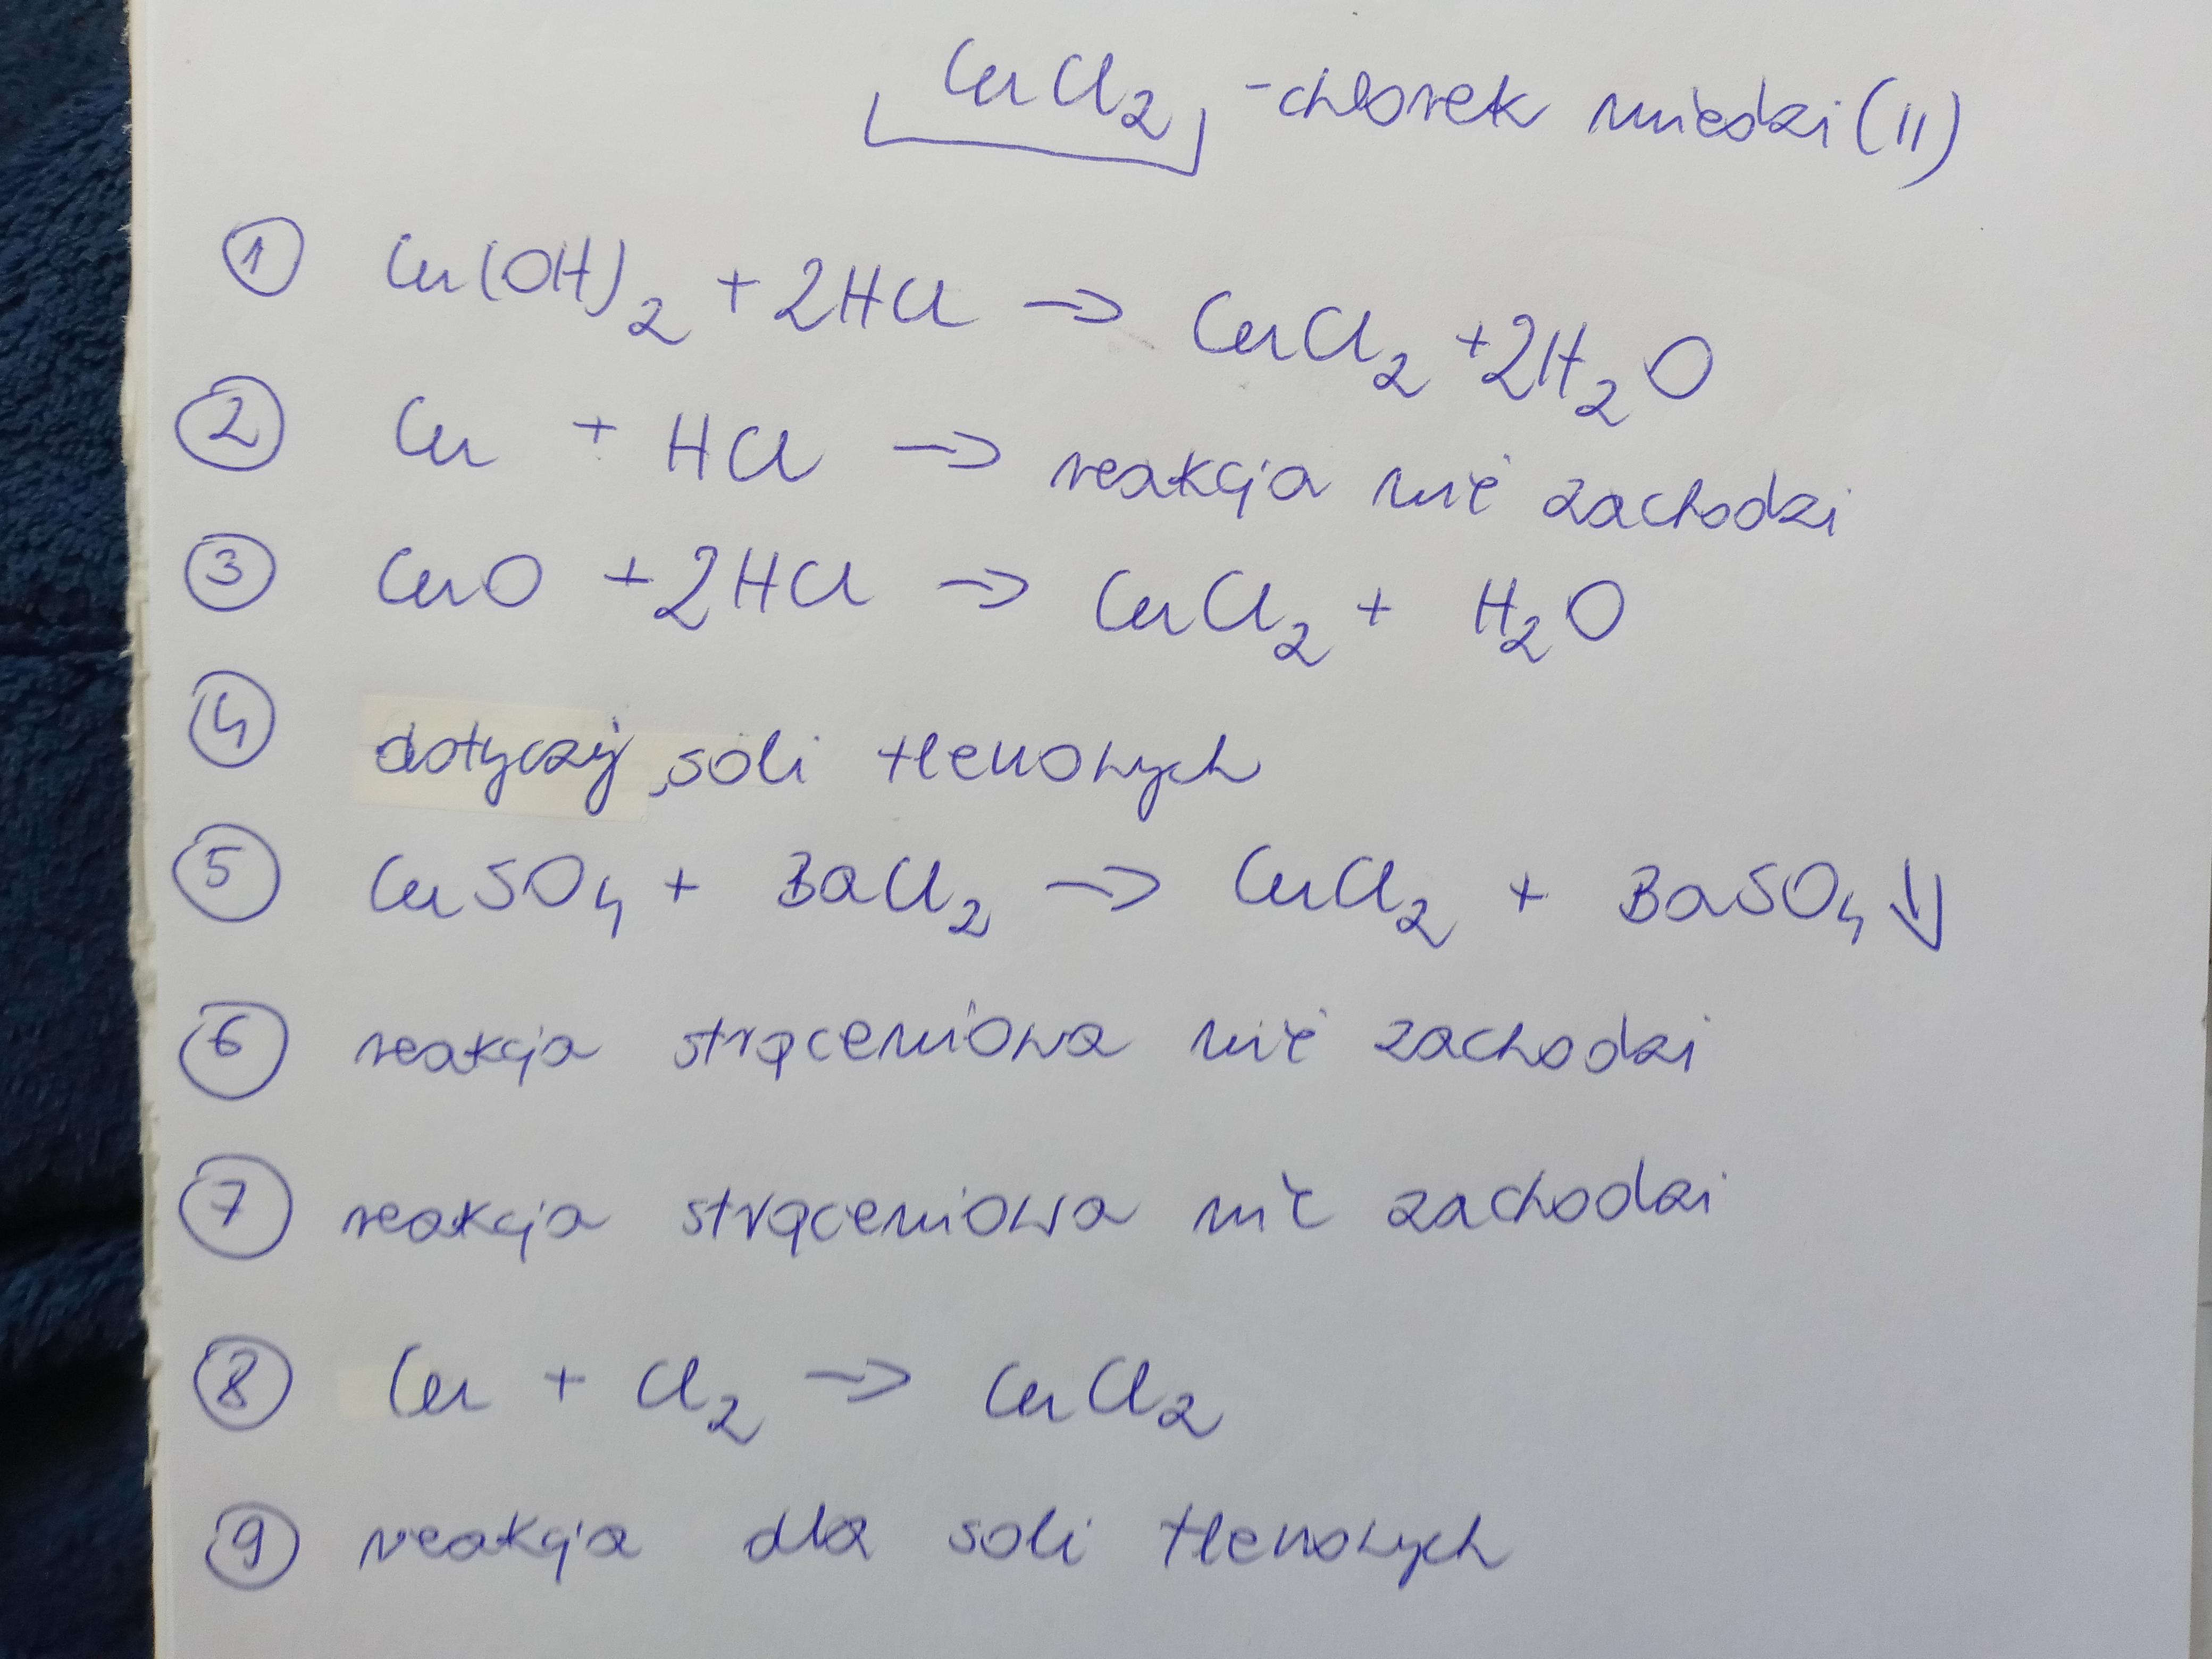 CuCl₂ - chlorek miedzi (II)
① Cu(OH)₂ + 2HCl → CuCl₂ + 2H₂O
② Cu + HCl → reakcja nie zachodzi
③ CuO + 2HCl → CuCl₂ + H₂O
④ dotyczy soli tlenowych
⑤ CuSO₄ + BaCl₂ → CuCl₂ + BaSO₄↓
⑥ reakcja strąceniowa nie zachodzi
⑦ reakcja strąceniowa nie zachodzi
⑧ Cu + Cl₂ → CuCl₂
⑨ reakcja dla soli tlenowych